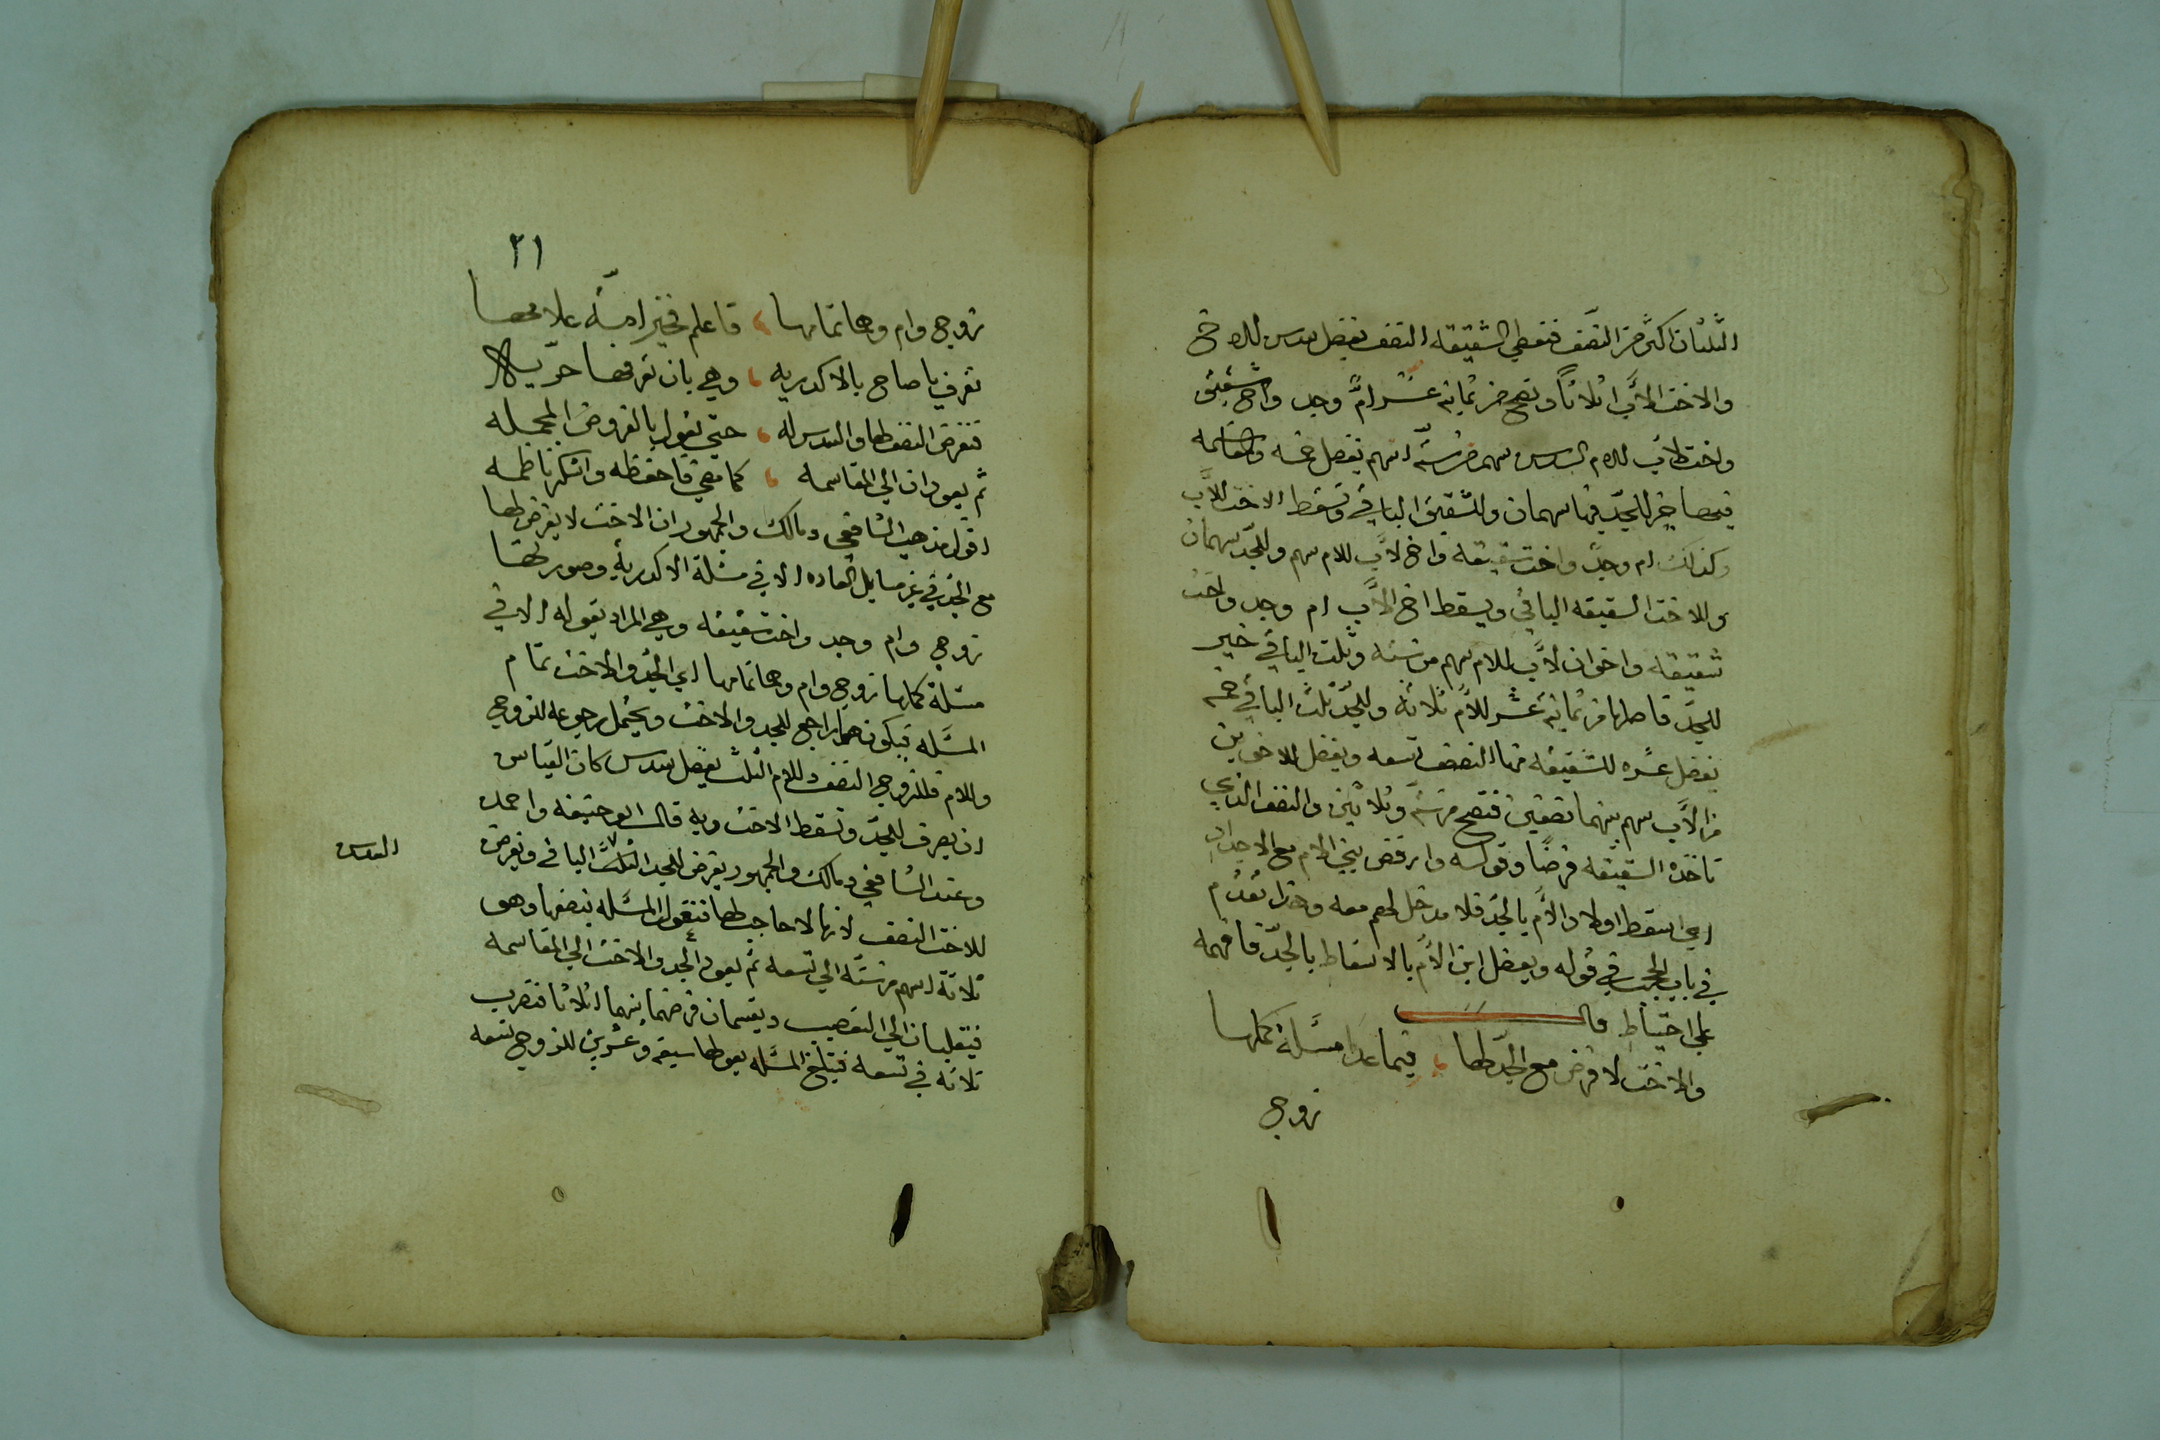 الثلثان اكثر من النصف فتعطي الشقيقه النصف يفضل سدس للاخ
والاخت للاب اثلاثاً وتصح من ثمانية عشر ام وجد واخ شقيق
واخت لاب للام السدس سهم من ستة اسهم يفضل خمسه والمقاسمه
فيها خير للجد فيها سهمان وللشقيق الباقي وتسقط الاخت للاب
وكذلك ام وجد واخت شقيقه واخ لاب للام سهم وللجد سهمان
وللاخت الشقيقه الباقي ويسقط اخ الاب ام وجد واخت
شقيقه واخوان لاب للام سهم من سته وثلث الباقي خير
للجد فاصلها من ثمانية عشر للام ثلاثه وللجد ثلث الباقي خمسه
يفضل عشره للشقيقه منها النصف تسعه ويفضل للاخوين
من الاب سهم بينهما نصفين فتصح من ستة وثلاثين والنصف الذي
تاخذه الشقيقه فرضاً وقوله وارفض بني الام مع الاجداد
اي اسقط اولاد الام بالجد فلا مدخل لهم معه وهذا تقدم
في باب الحجب في قوله ويفضل ابن الام بالاسقاط بالجد فافهمه
على احتياط قال
والاخت لا فرض مع الجد لها ، فيما عدا مسئلة كملها
زوج
٢١
زوج وام وهما تمامها ، فاعلم فخير امة علامها
تعرف يا صاح بالاكدريه ، وهي بان تعرفها حريه
فتفرض النصف لها والسدس له ، حتي تعول بالفروض المجمله
ثم يعودان الي المقاسمه ، كما مضي فاحفظه واشكر ناظمه
اقول مذهب الشافعي ومالك والجمهور ان الاخت لا يفرض لها
مع الجد في غير مسايل المعاده الا في مسئلة الاكدرية وصورتها
زوج وام وجد واخت شقيقه وهي المراد بقوله الا في
مسئلة كملها زوج وام وهما تمامها اي الجد والاخت تمام
المسئله فيكون هما راجع للجد والاخت ويحتمل رجوعه للزوج
والام فللزوج النصف وللام الثلث يفضل سدس كان القياس
ان يصرف للجد وتسقط الاخت وبه قال ابو حنيفه واحمد
وعند الشافعي ومالك والجمهور يفرض للجد الثلث الباقي ويفرض
السدس
للاخت النصف لانها لا حاجب لها فتعول المسئله بنصفها وهو
ثلاثة اسهم من ستة الي تسعه ثم يعود الجد والاخت الي المقاسمه
فيقلبان الي التعصيب ويقسمان فرضهما بينهما اثلاثا فتضرب
ثلاثه في تسعه فتبلغ المسئله بعولها سبعة وعشرين للزوج تسعه